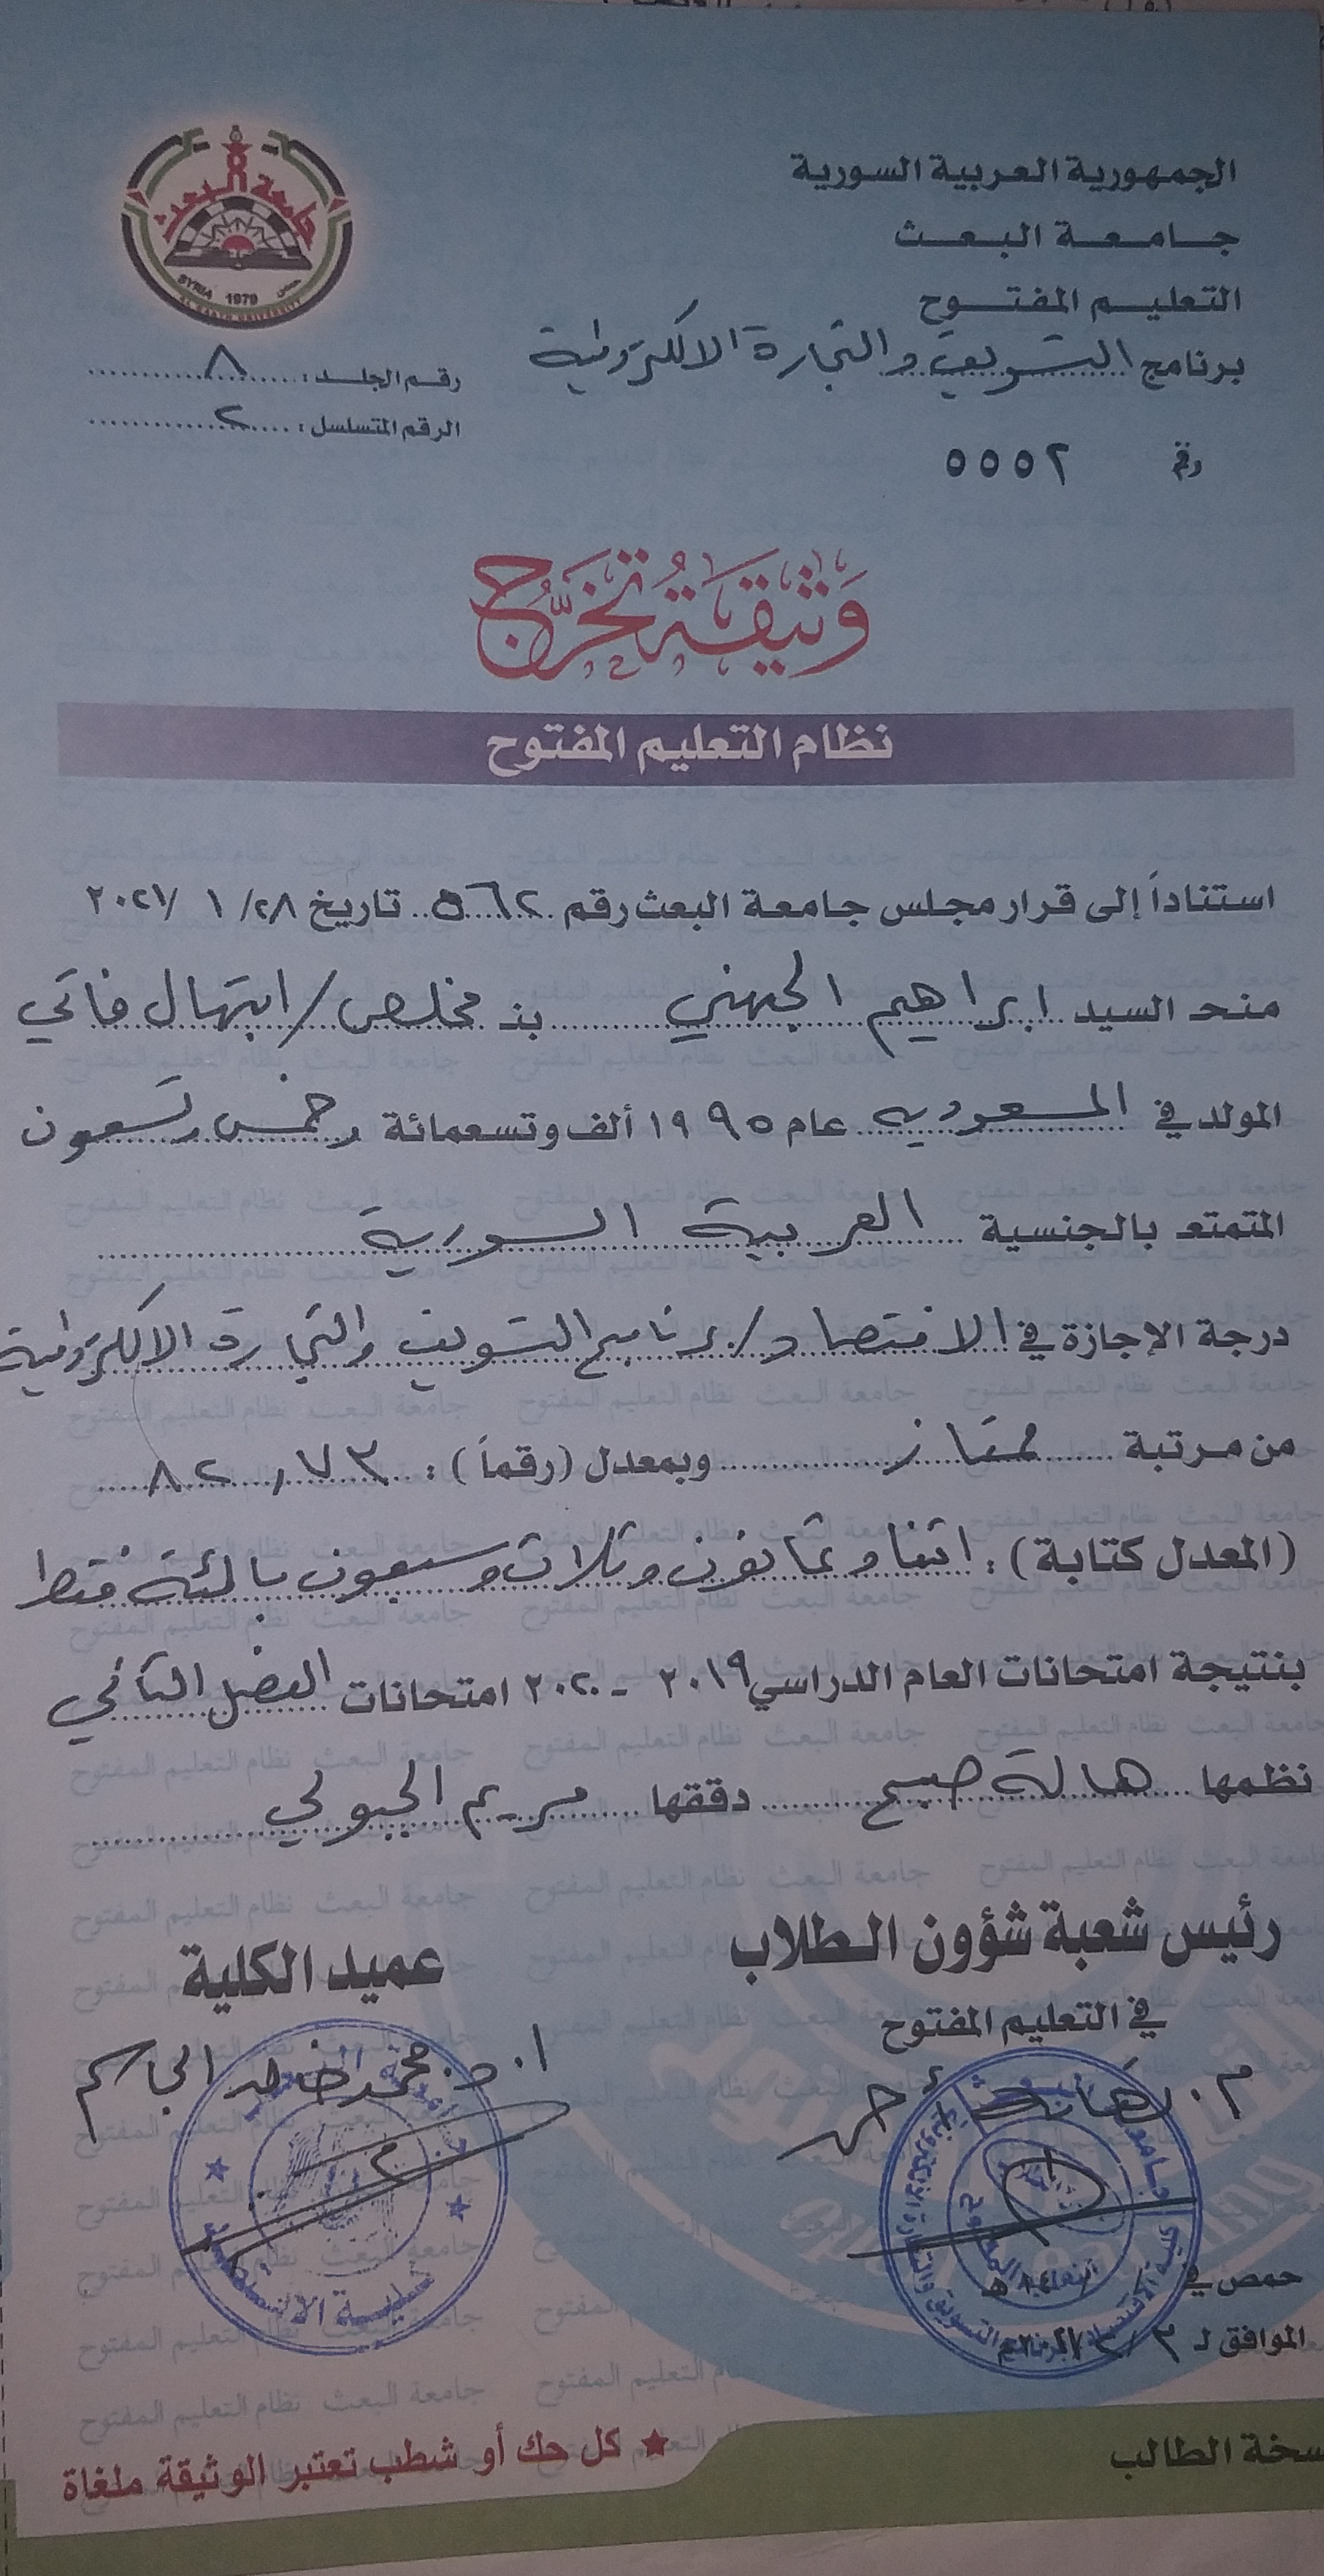 الجمهورية العربية السورية
جامعة البعث
التعليم المفتوح
برنامج التسويق والتجارة الالكترونية
رقم ٥٥٥٢
جامعة البعث
SYRIA 1979 حمص
AL BAATH UNIVERSITY
رقم الجلد : ٨
الرقم المتسلسل : ٢
وَثيقَة تخَرُّج
نظام التعليم المفتوح
استناداً إلى قرار مجلس جامعة البعث رقم ٥٦٢ تاريخ ٢٨/ ١ /٢٠٢١
منح السيد ابراهيم الجهني بن مخلص/ابتهال
المولد في السعودية عام ١٩٩٥ ألف وتسعمائة وخمس وتسعون
المتمتع بالجنسية العربية السورية
درجة الإجازة في الاقتصاد/برنامج التسويق والتجارة الالكترونية
من مرتبة ممتاز وبمعدل (رقماً) : ٨٢,٧٣
(المعدل كتابة) : اثنا وثمانون وثلاث وسبعون بالمئة فقط
بنتيجة امتحانات العام الدراسي ٢٠١٩ - ٢٠٢٠ امتحانات الفصل الثاني
نظمها هالة صبح دققها مريم الجبولي
رئيس شعبة شؤون الطلاب
في التعليم المفتوح
عميد الكلية
أ.د. محمد خالد
حمص في
الموافق لـ
نسخة الطالب
★ كل حك أو شطب تعتبر الوثيقة ملغاة